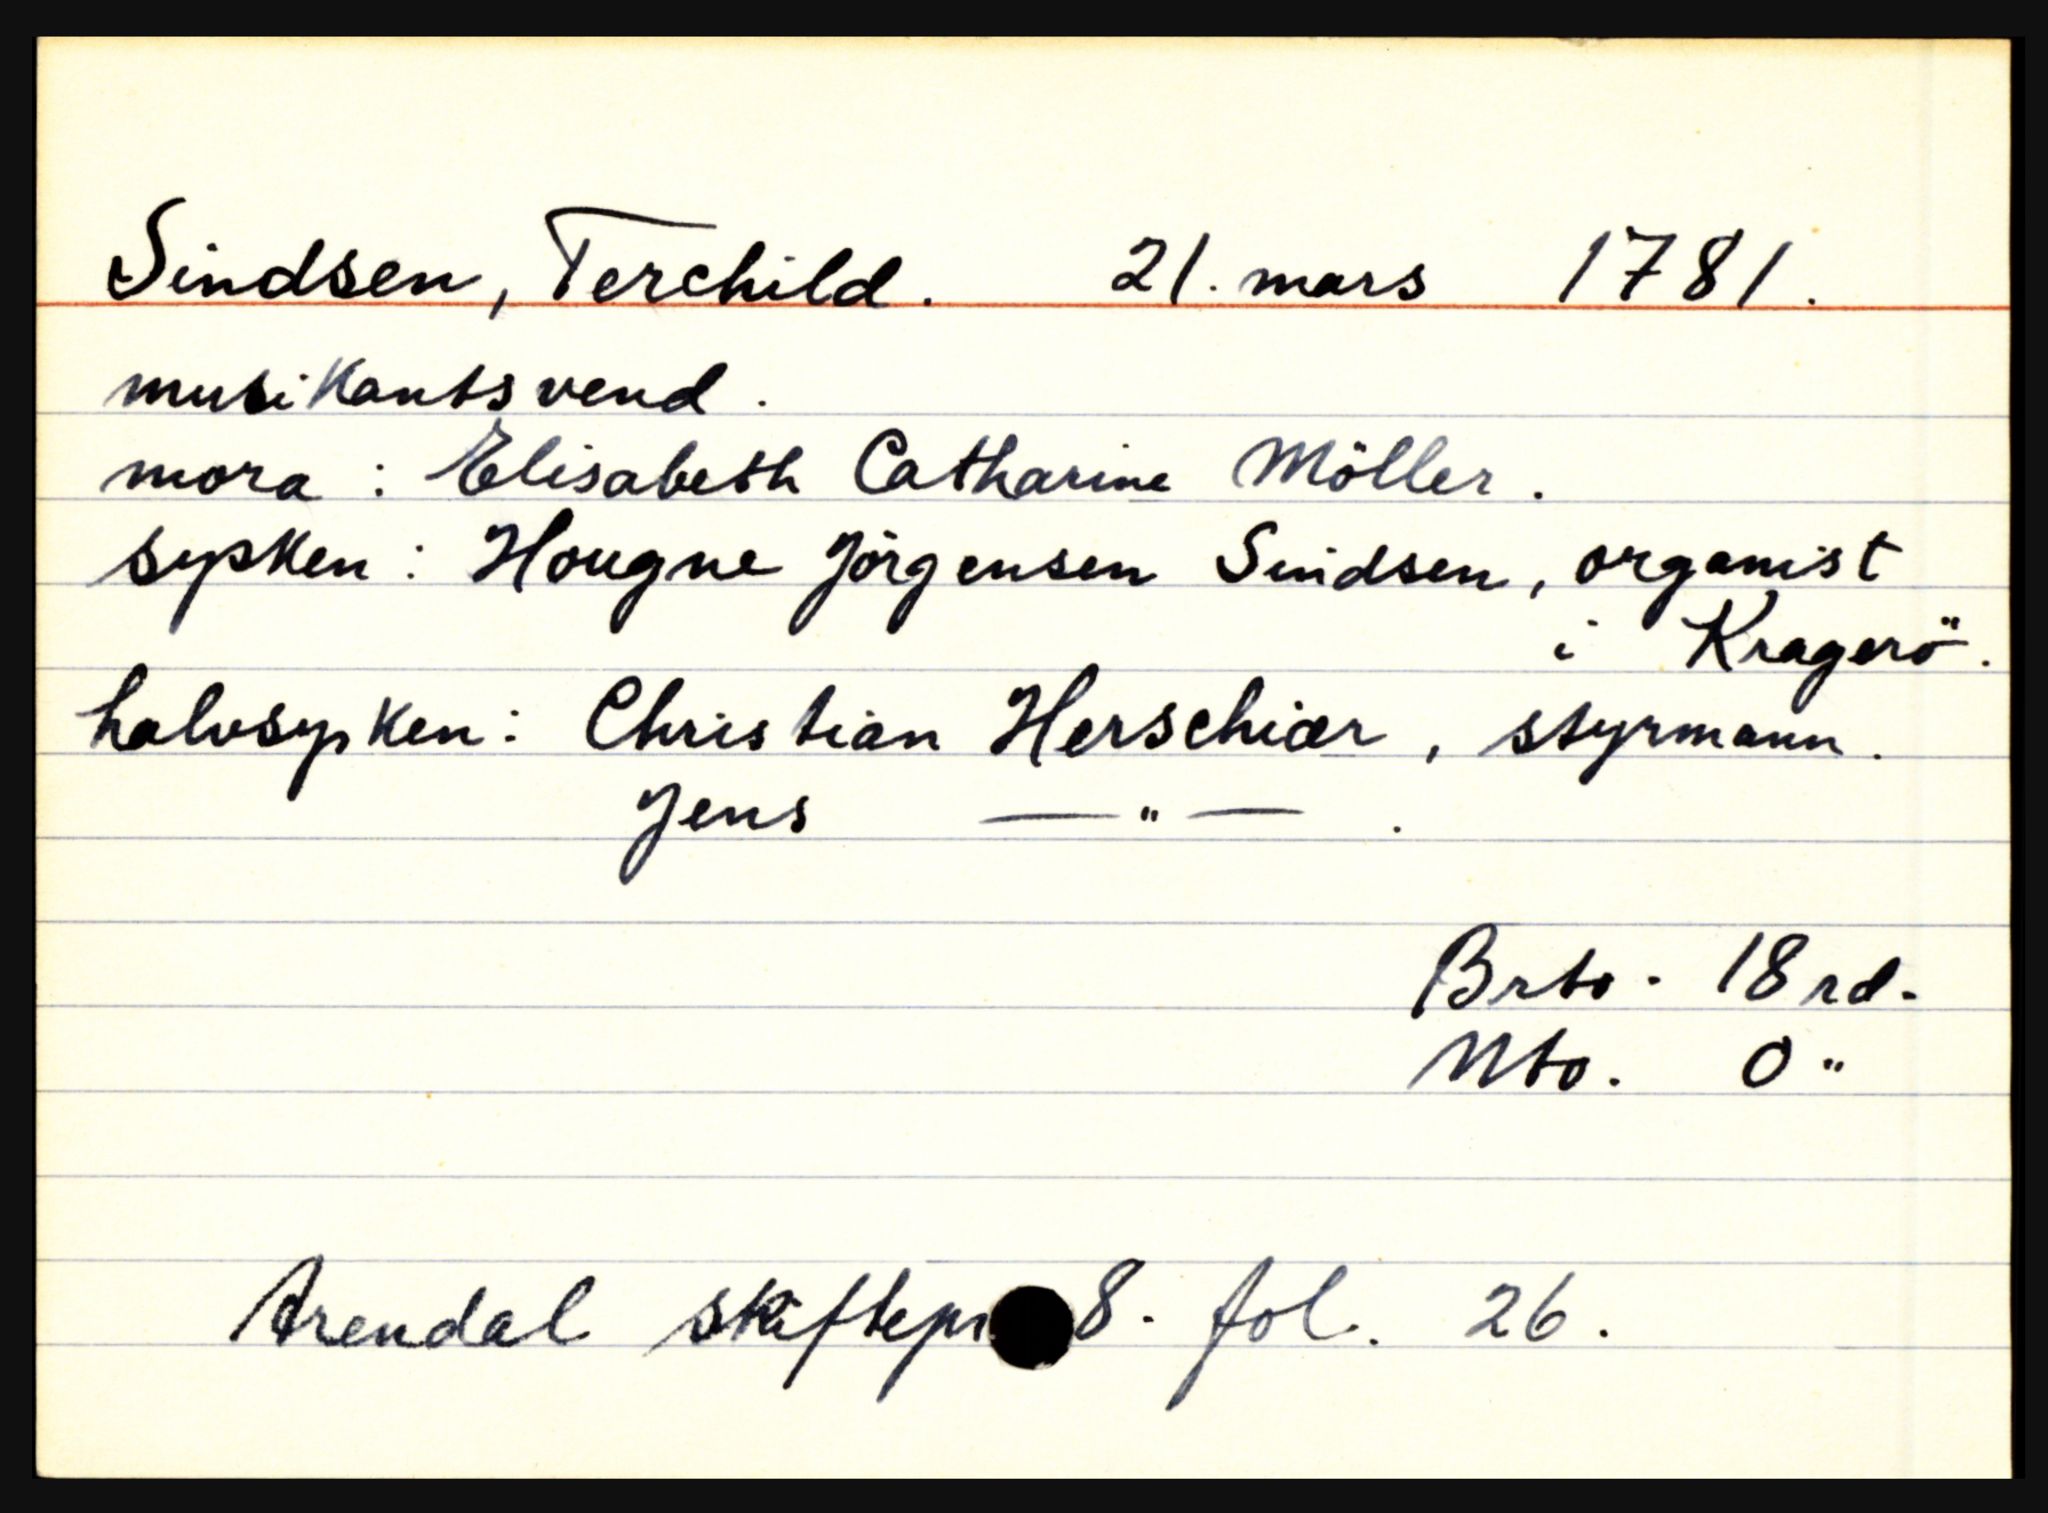 Sindsen, Terchild. 21. mars 1781.
musikantsvend.
mora: Elisabeth Catharine Möller.
sysken: Hougne Jörgensen Sindsen, organist
i Kragerö.
halvsysken: Christian Herschiær, styrmann.
Jens —"— .
Brto. 18 rd.
Nto. 0 "
Arendal skiftepr 8. fol. 26.